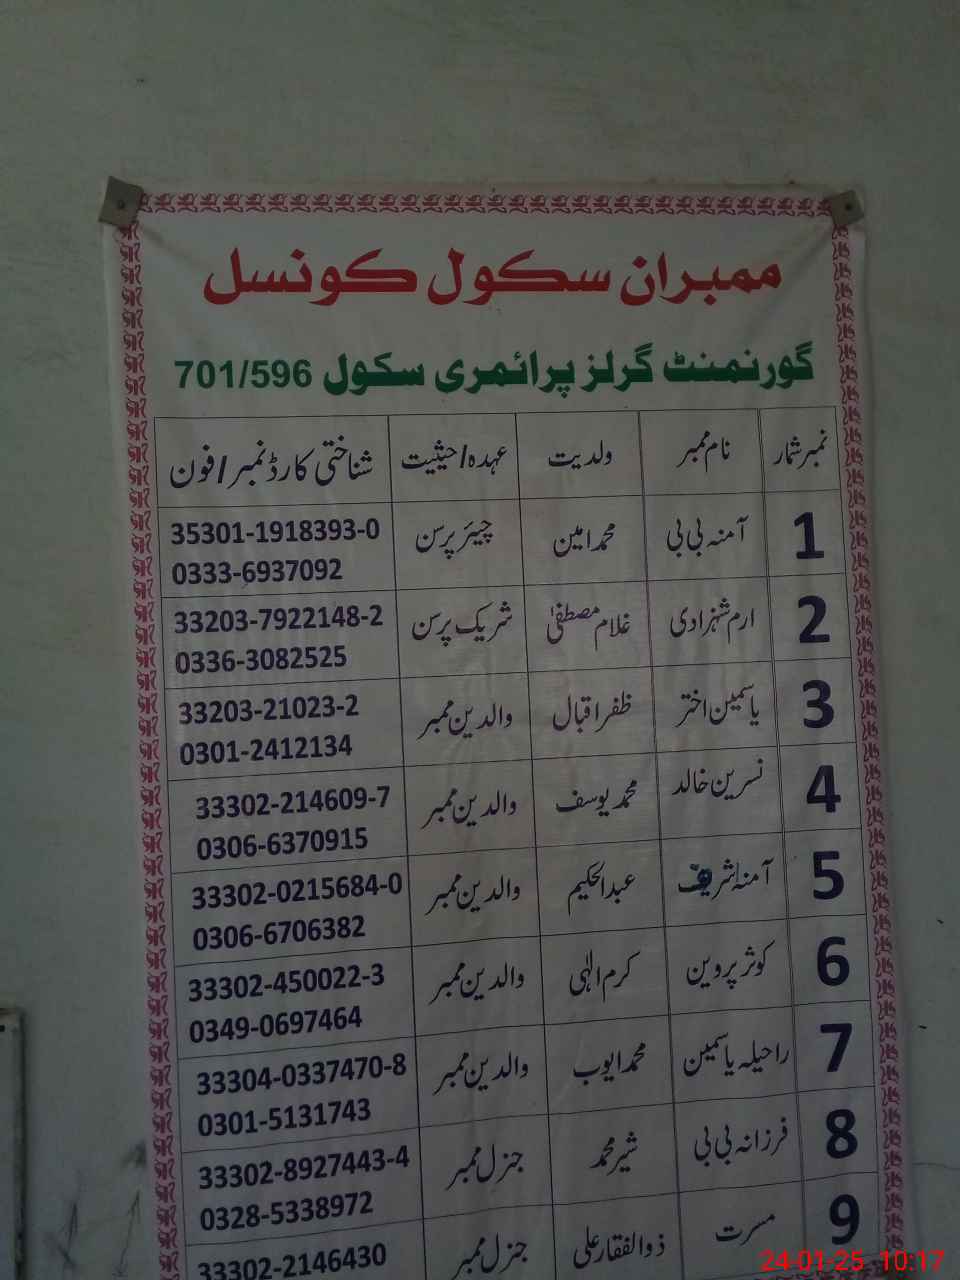 ممبران سکول کونسل
گورنمنٹ گرلز پرائمری سکول 701/596
نمبر شمار نام ممبر ولدیت عہدہ/حیثیت شناختی کارڈ نمبر/فون
1 آمنہ بی بی محمد امین چیئر پرسن 35301-1918393-0
0333-6937092
2 ارم شہزادی غلام مصطفیٰ شریک پرسن 33203-7922148-2
0336-3082525
3 یاسمین اختر ظفر اقبال والدین ممبر 33203-21023-2
0301-2412134
4 نسرین خالد محمد یوسف والدین ممبر 33302-214609-7
0306-6370915
5 آمنہ اشرف عبدالحکیم والدین ممبر 33302-0215684-0
0306-6706382
6 کوثر پروین کرم الٰہی والدین ممبر 33302-450022-3
0349-0697464
7 راحیلہ یاسمین محمد ایوب والدین ممبر 33304-0337470-8
0301-5131743
8 فرزانہ بی بی شیر محمد جنرل ممبر 33302-8927443-4
0328-5338972
9 مسرت ذوالفقار علی جنرل ممبر 33302-2146430
24-01-25 10:17